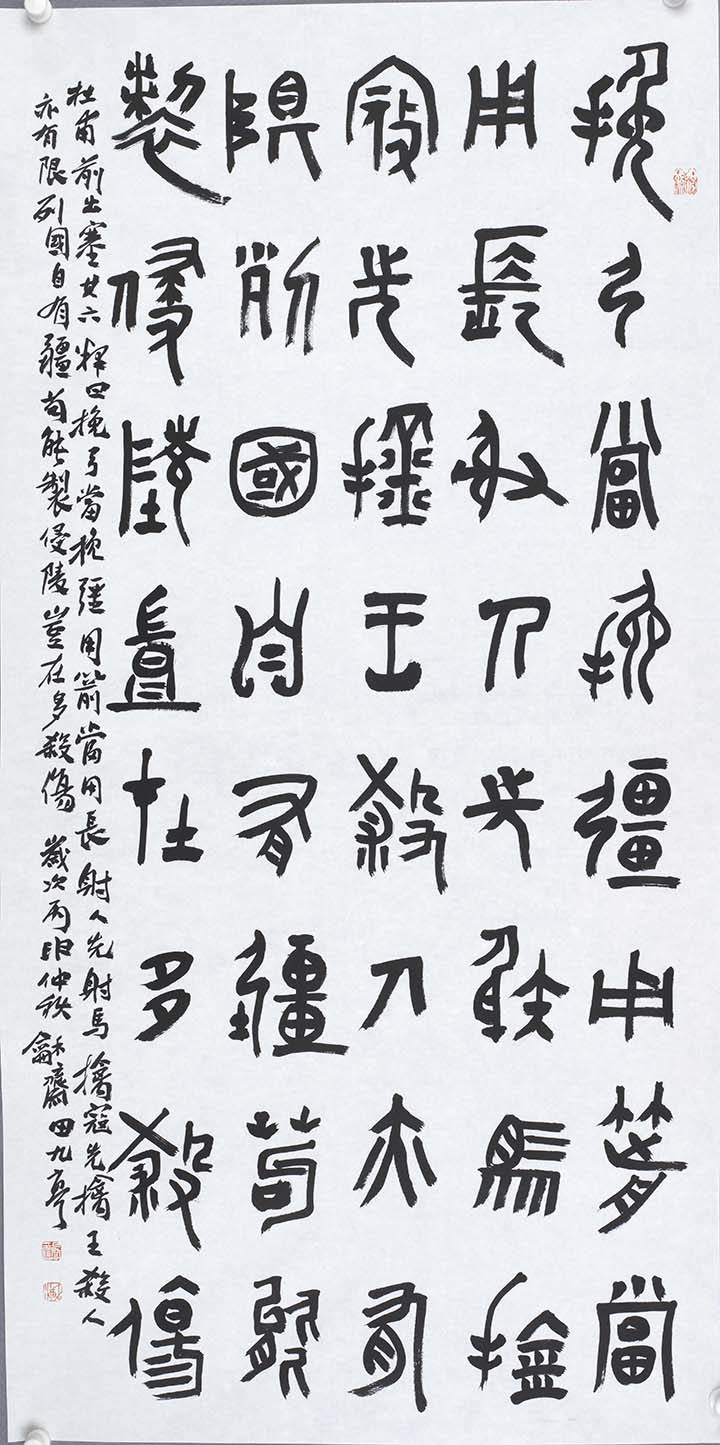 挽弓當挽彊用箭當
用長射人先射馬擒
寇先擒王殺人亦有
限列國自有疆苟能
製侵陵豈在多殺傷
杜甫前出塞其六釋曰挽弓當挽彊用箭當用長射人先射馬擒寇先擒王殺人
亦有限列國自有疆苟能製侵陵豈在多殺傷 歲次丙申仲秋龢齋四九